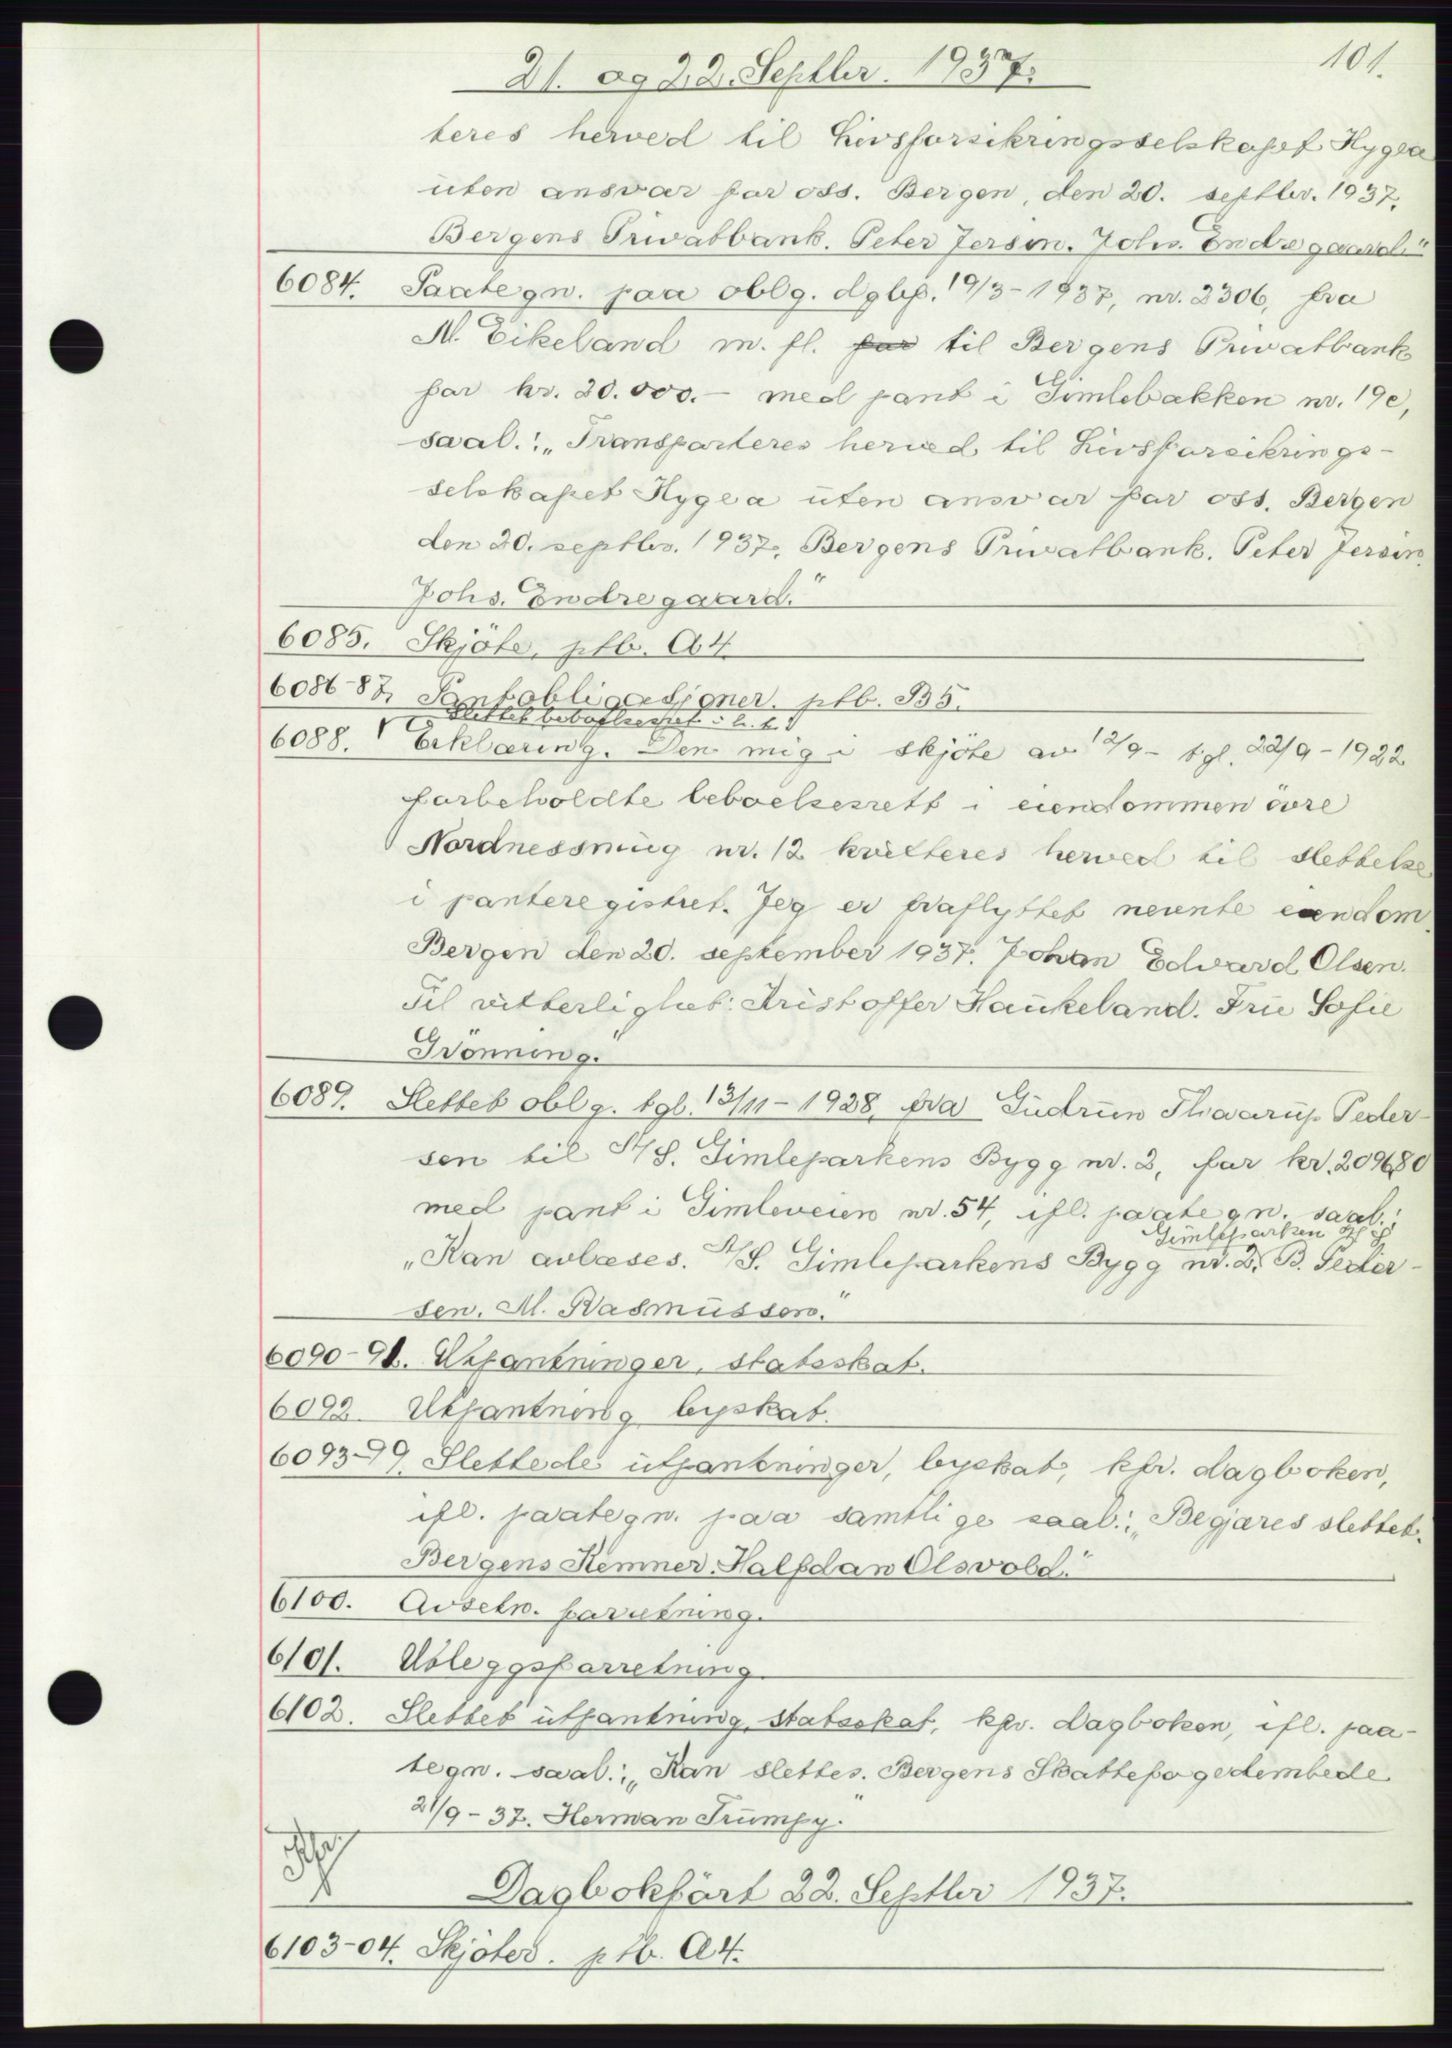 101.
21. og 22. Septbr. 1937.
teres herved til Livsforsikringsselskapet Hygea
uten ansvar for oss. Bergen, den 20. septbr. 1937.
Bergens Privatbank. Peter Jersin. Johs. Endregaard."
6084. Paategn. paa oblg. dgbf. 19/3-1937, nr. 2306, fra
M. Eikeland m. fl. for til Bergens Privatbank
for kr. 20.000.- med pant i Gimlebakken nr. 19c,
saal.: „Transporteres herved til Livsforsikrings-
selskapet Hygea uten ansvar for oss. Bergen
den 20. septbr. 1937. Bergens Privatbank. Peter Jersin.
Johs. Endregaard."
6085. Skjöte, ptb. A4.
6086-87. Pantobligasjoner. ptb. B5.
Slettet beboelsesret
6088. Erklæring. Den mig i skjöte av 12/9- tgl. 22/9-1922
forbeholdte beboelsesrett i eiendommen övre
Nordnessmug nr. 12 kvitteres herved til slettelse
i panteregistret. Jeg er fraflyttet nevnte eiendom.
Bergen den 20. september 1937. Johan Edvard Olsen.
Til vitterlighet: Kristoffer Haukeland. Fru Sofie
Grönning."
6089. Slettet oblg. tgl. 13/11-1928, fra Gudrun Thaarup Peder-
sen til A/S. Gimleparkens Bygg nr. 2, for kr. 209680
med pant i Gimleveien nr. 54, ifl. paategn. saal.:
Gimleparken
„Kan avlæses. A/S. Gimleparkens Bygg nr. 2. B. Peder-
sen. M. Rasmussen."
6090-91. Utpantninger, statsskat.
6092. Utpantning byskat.
6093-99. Slettede utpantninger, byskat, kfr. dagboken,
ifl. paategn. paa samtlige saal.: „Begjæres slettet.
Bergens Kemner. Halfdan Olsvold."
6100. Avsetn. forretning.
6101. Utleggsforretning.
6102. Slettet utpantning, statsskat, kfr. dagboken, ifl. paa-
tegn. saal.: „Kan slettes. Bergens Skattefogedembede
21/9-37. Herman Trumpy."
Dagbokfört 22. Septbr 1937.
6103-04. Skjöter. ptb. A4.